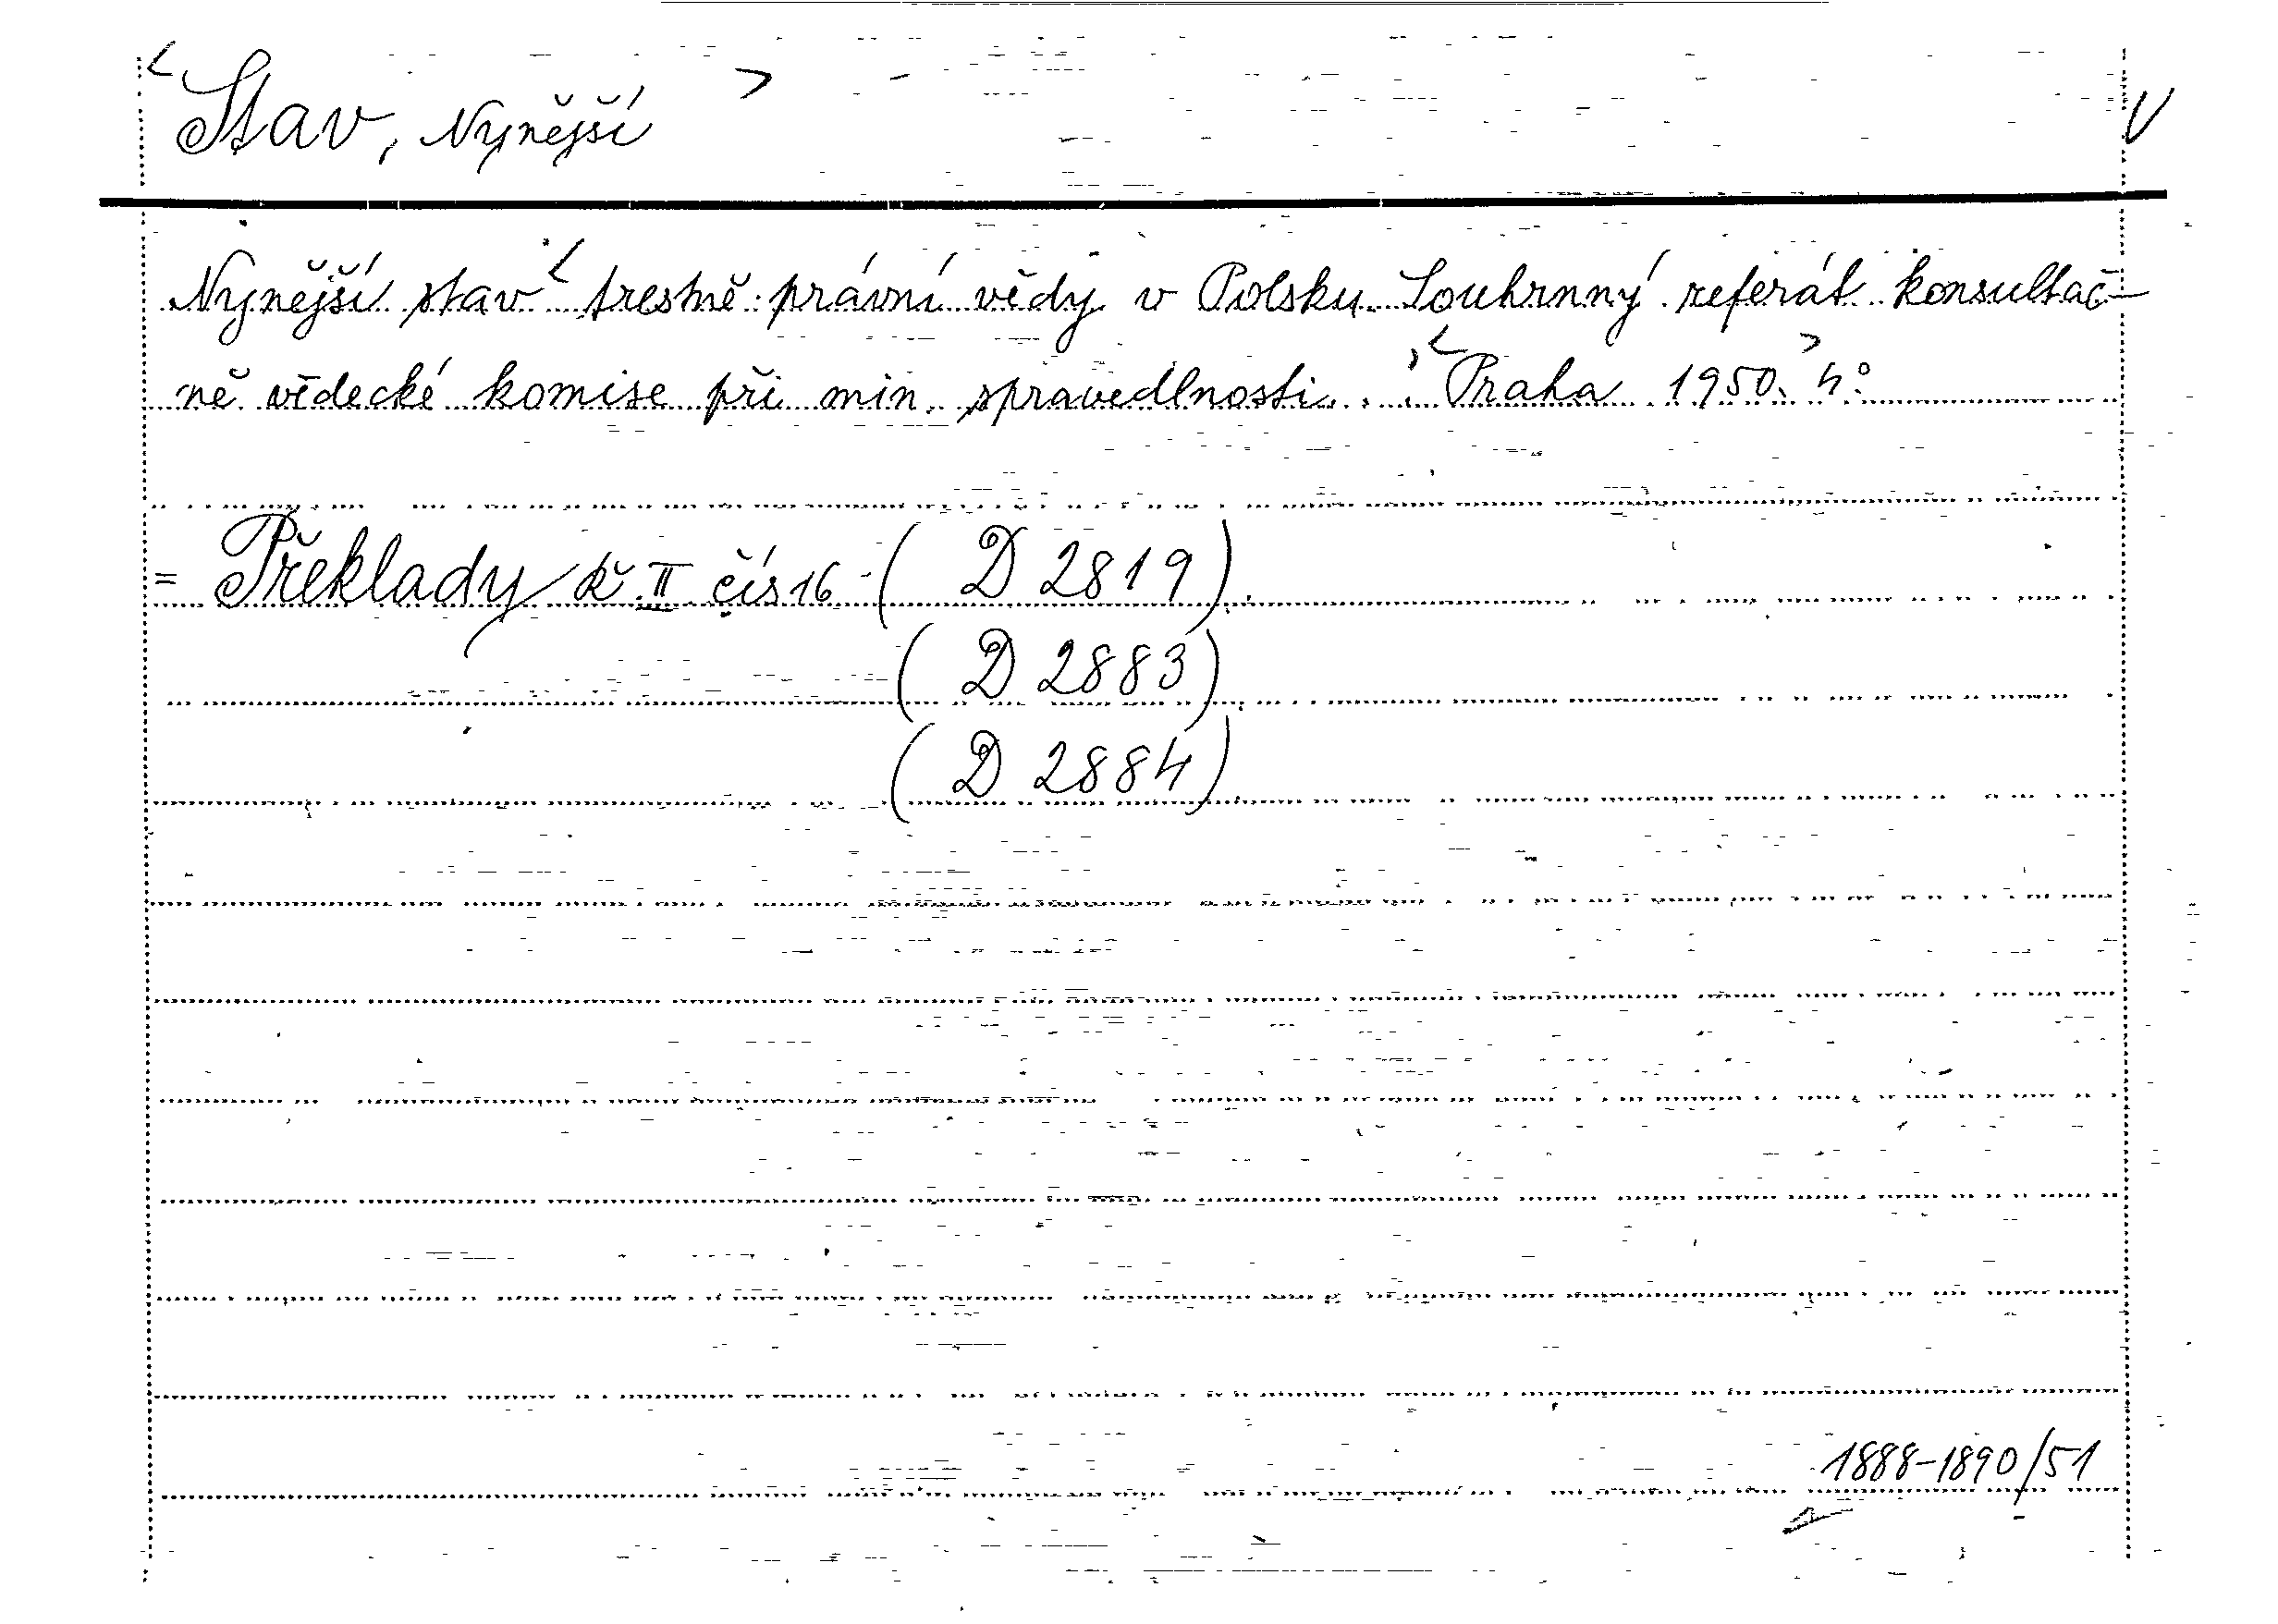 < Stav, Nynější > V
Nynější stav < trestně právní vědy v Polsku. Souhrnný referát konsultač-
ně vědecké komise při min. spravedlnosti. , < Praha 1950. > 4°
= Překlady ř. II čís 16 (D 2819).
(D 2883)
(D 2884)
1888-1890/51